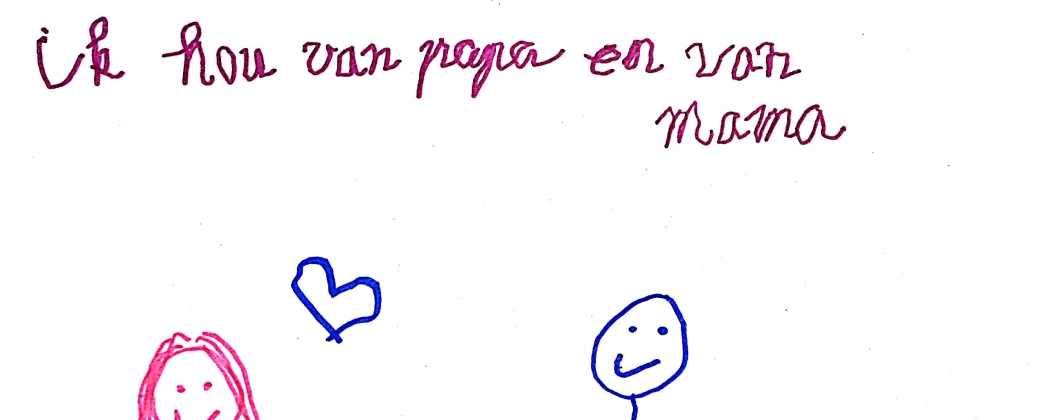 ik hou van papa en van
mama